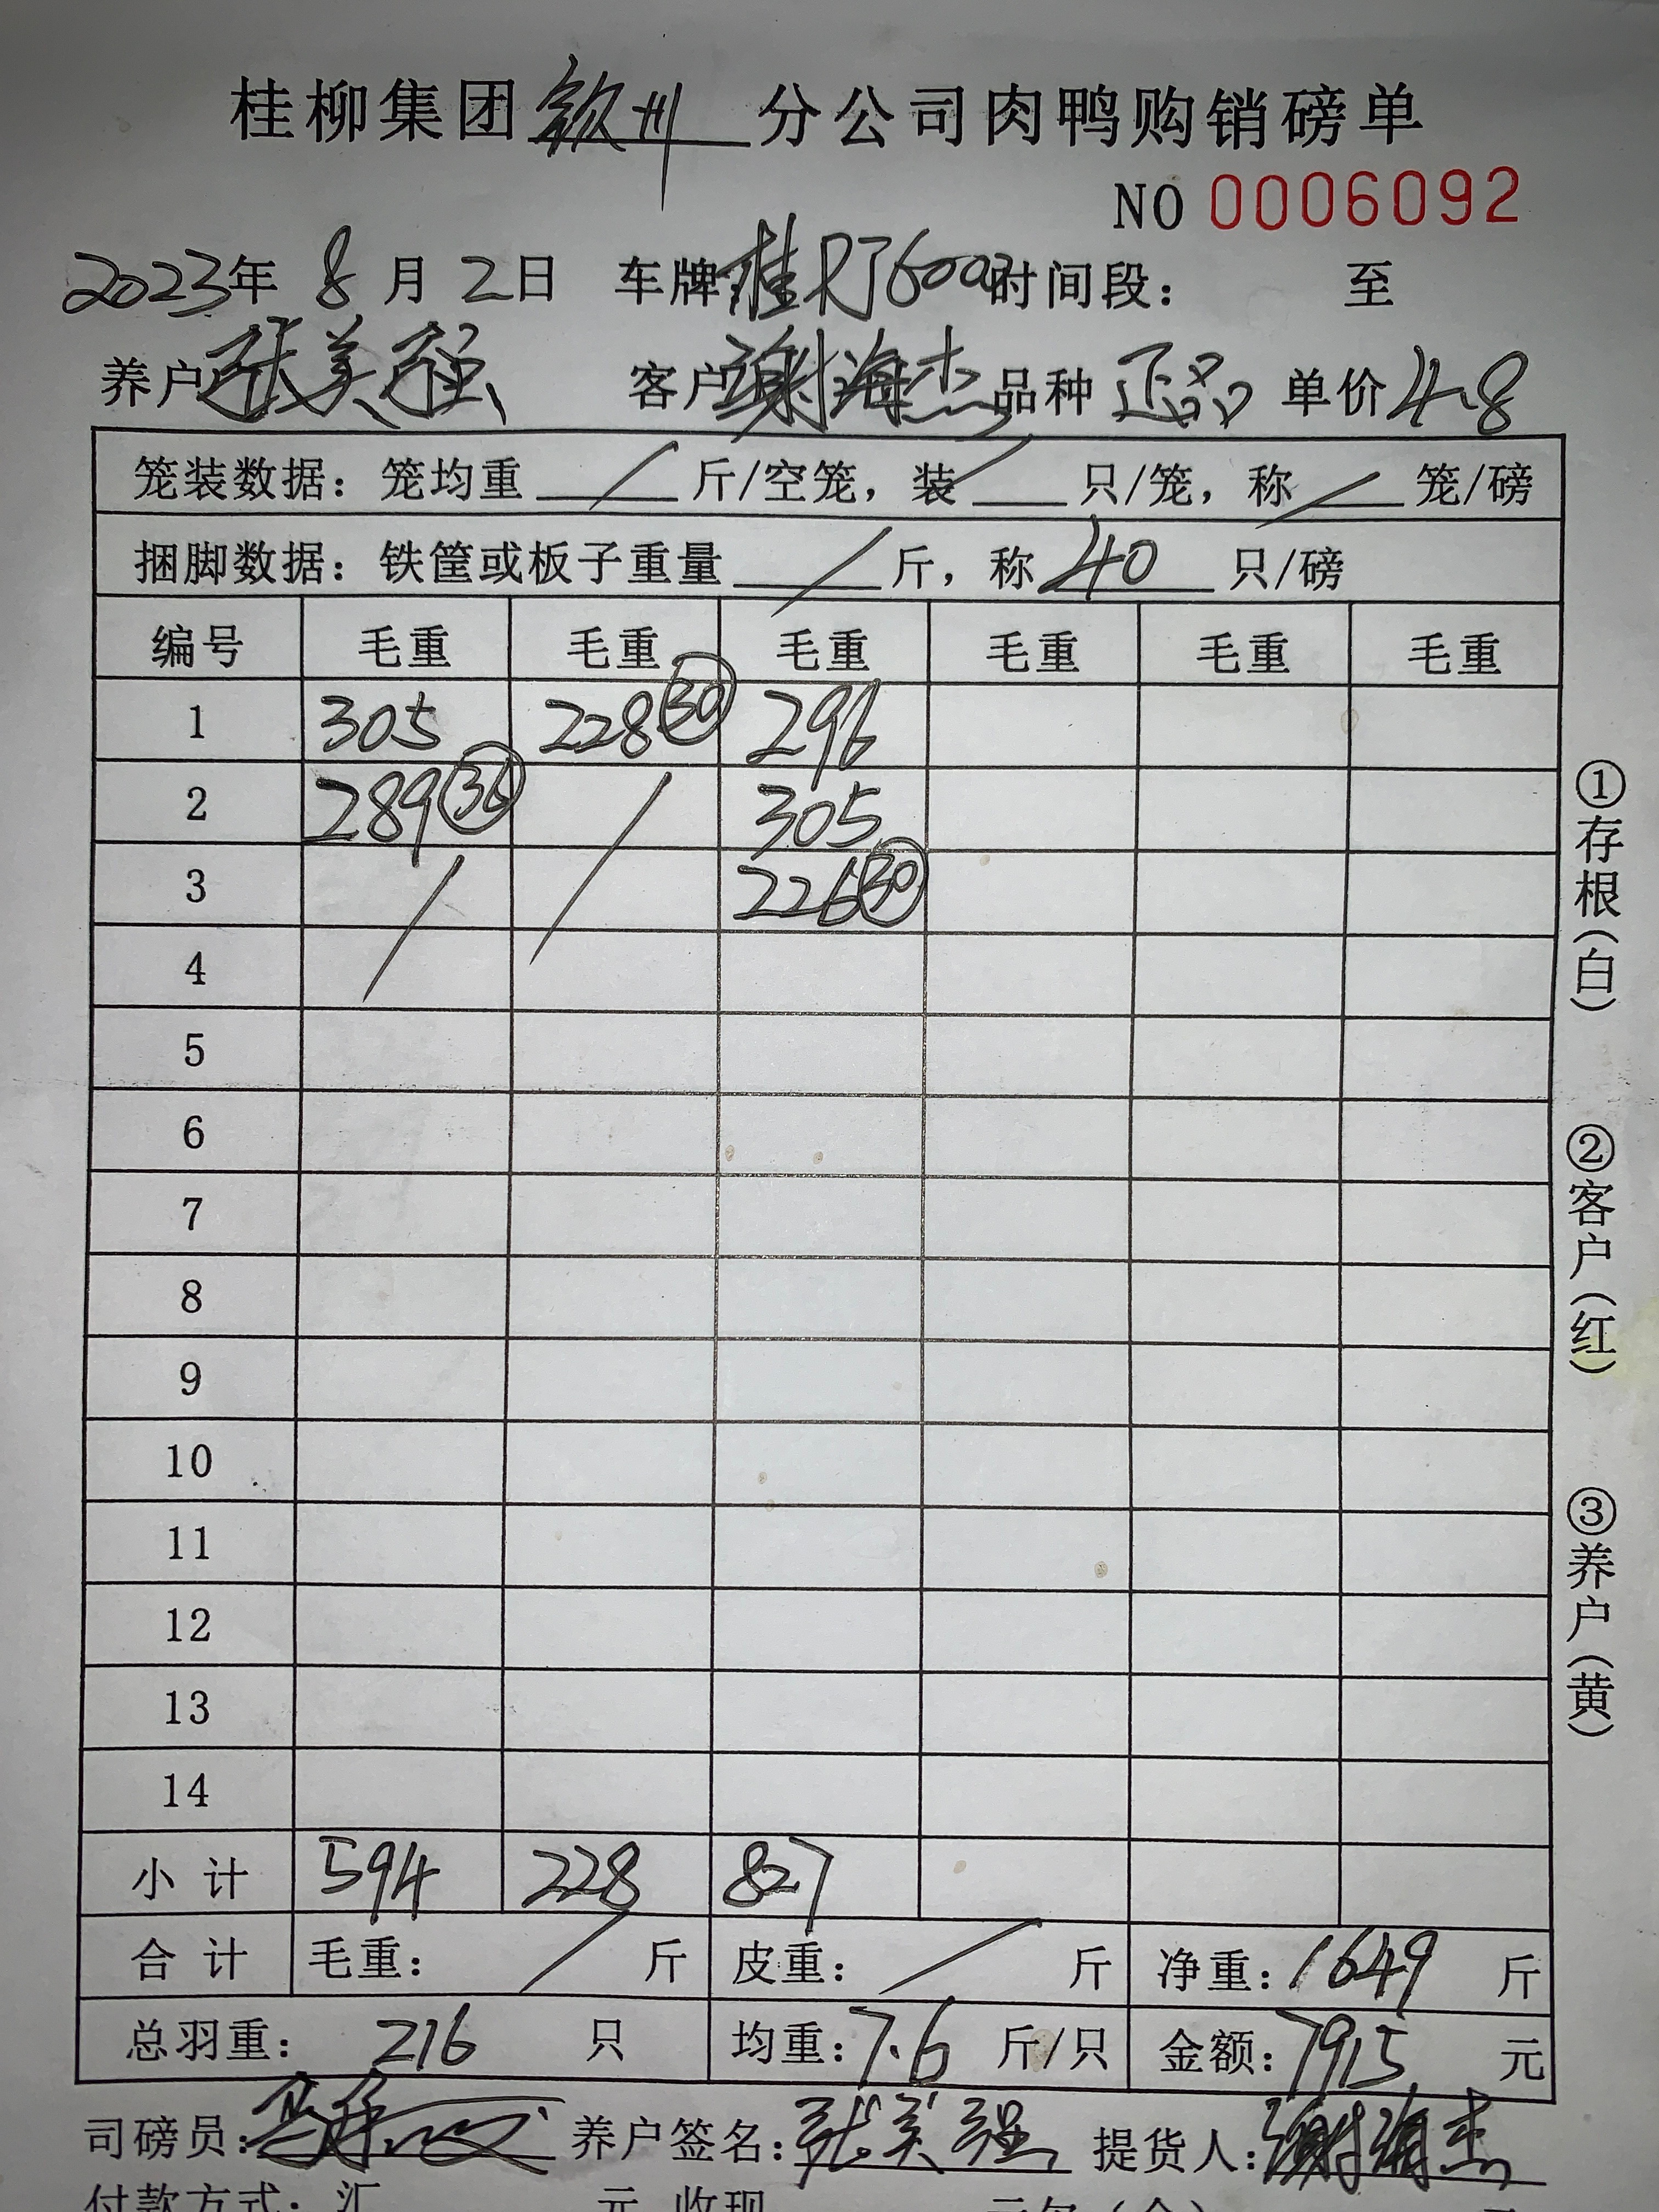 桂柳集团钦州分公司肉鸭购销磅单
NO 0006092
2023年 8月 2日 车牌 桂R 时间段： 至
养户 张美强 客户 谢海杰 品种 正品 单价 4.8
笼装数据：笼均重 / 斤/空笼，装 / 只/笼，称 / 笼/磅
捆脚数据：铁筐或板子重量 / 斤，称 40 只/磅
编号 毛重 毛重 毛重 毛重 毛重 毛重
1 305 228 30 296
2 289 36 / 305
3 / 226 30
4
5
6
7
8
9
10
11
12
13
14
小计 594 228 827
合计 毛重： / 斤 皮重： / 斤 净重：1649 斤
总羽重： 216 只 均重：7.6 斤/只 金额：7915 元
司磅员： 养户签名：张美强 提货人：谢海杰
付款方式：汇 元 收现
①存根（白）
②客户（红）
③养户（黄）